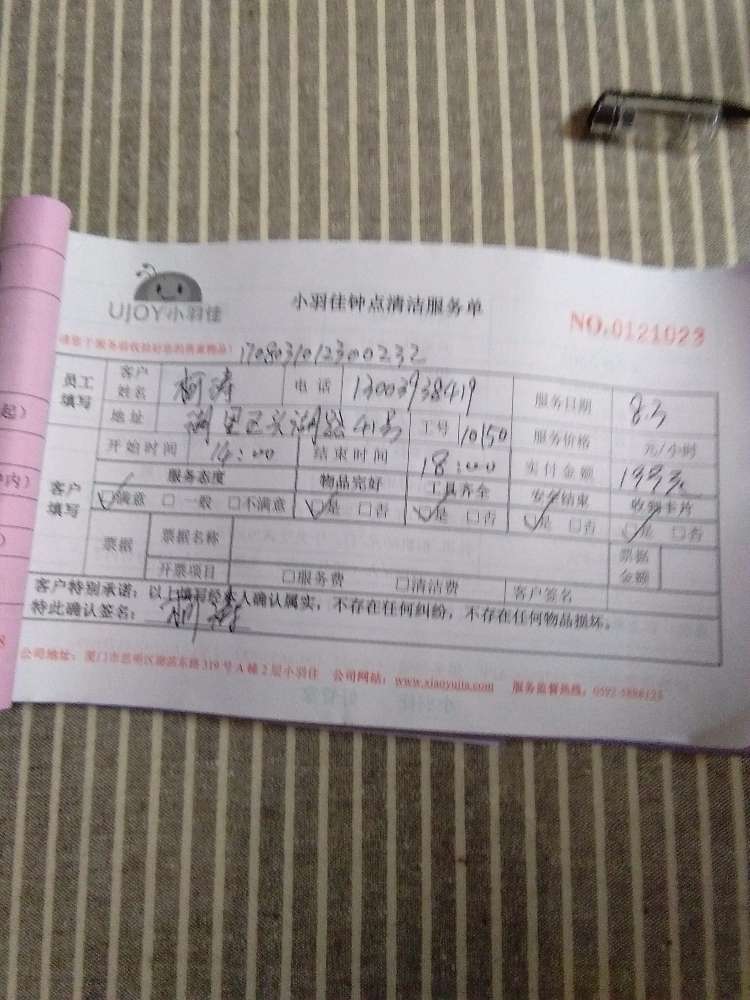 UJOY小羽佳
小羽佳钟点清洁服务单
NO.0121023
1708031012300232
员工填写 客户姓名 柯涛 电话 13003938419 服务日期 8.3
地址 湖里区 41号 工号 10150 服务价格 元/小时
开始时间 14:00 结束时间 18:00 实付金额
客户填写 服务态度 物品完好 工具齐全 安全结束 收到卡片
满意 □一般 □不满意 是 □否 是 □否 是 □否 是 □否
票据 票据名称 票据金额
开票项目 □服务费 □清洁费 客户签名
客户特别承诺:以上填写经本人确认属实,不存在任何纠纷,不存在任何物品损坏。
特此确认签名:
公司地址:厦门市思明区湖滨东路319号A幢2层小羽佳 公司网站:www.xiaoyujia.com 服务监督热线:
起)
内)